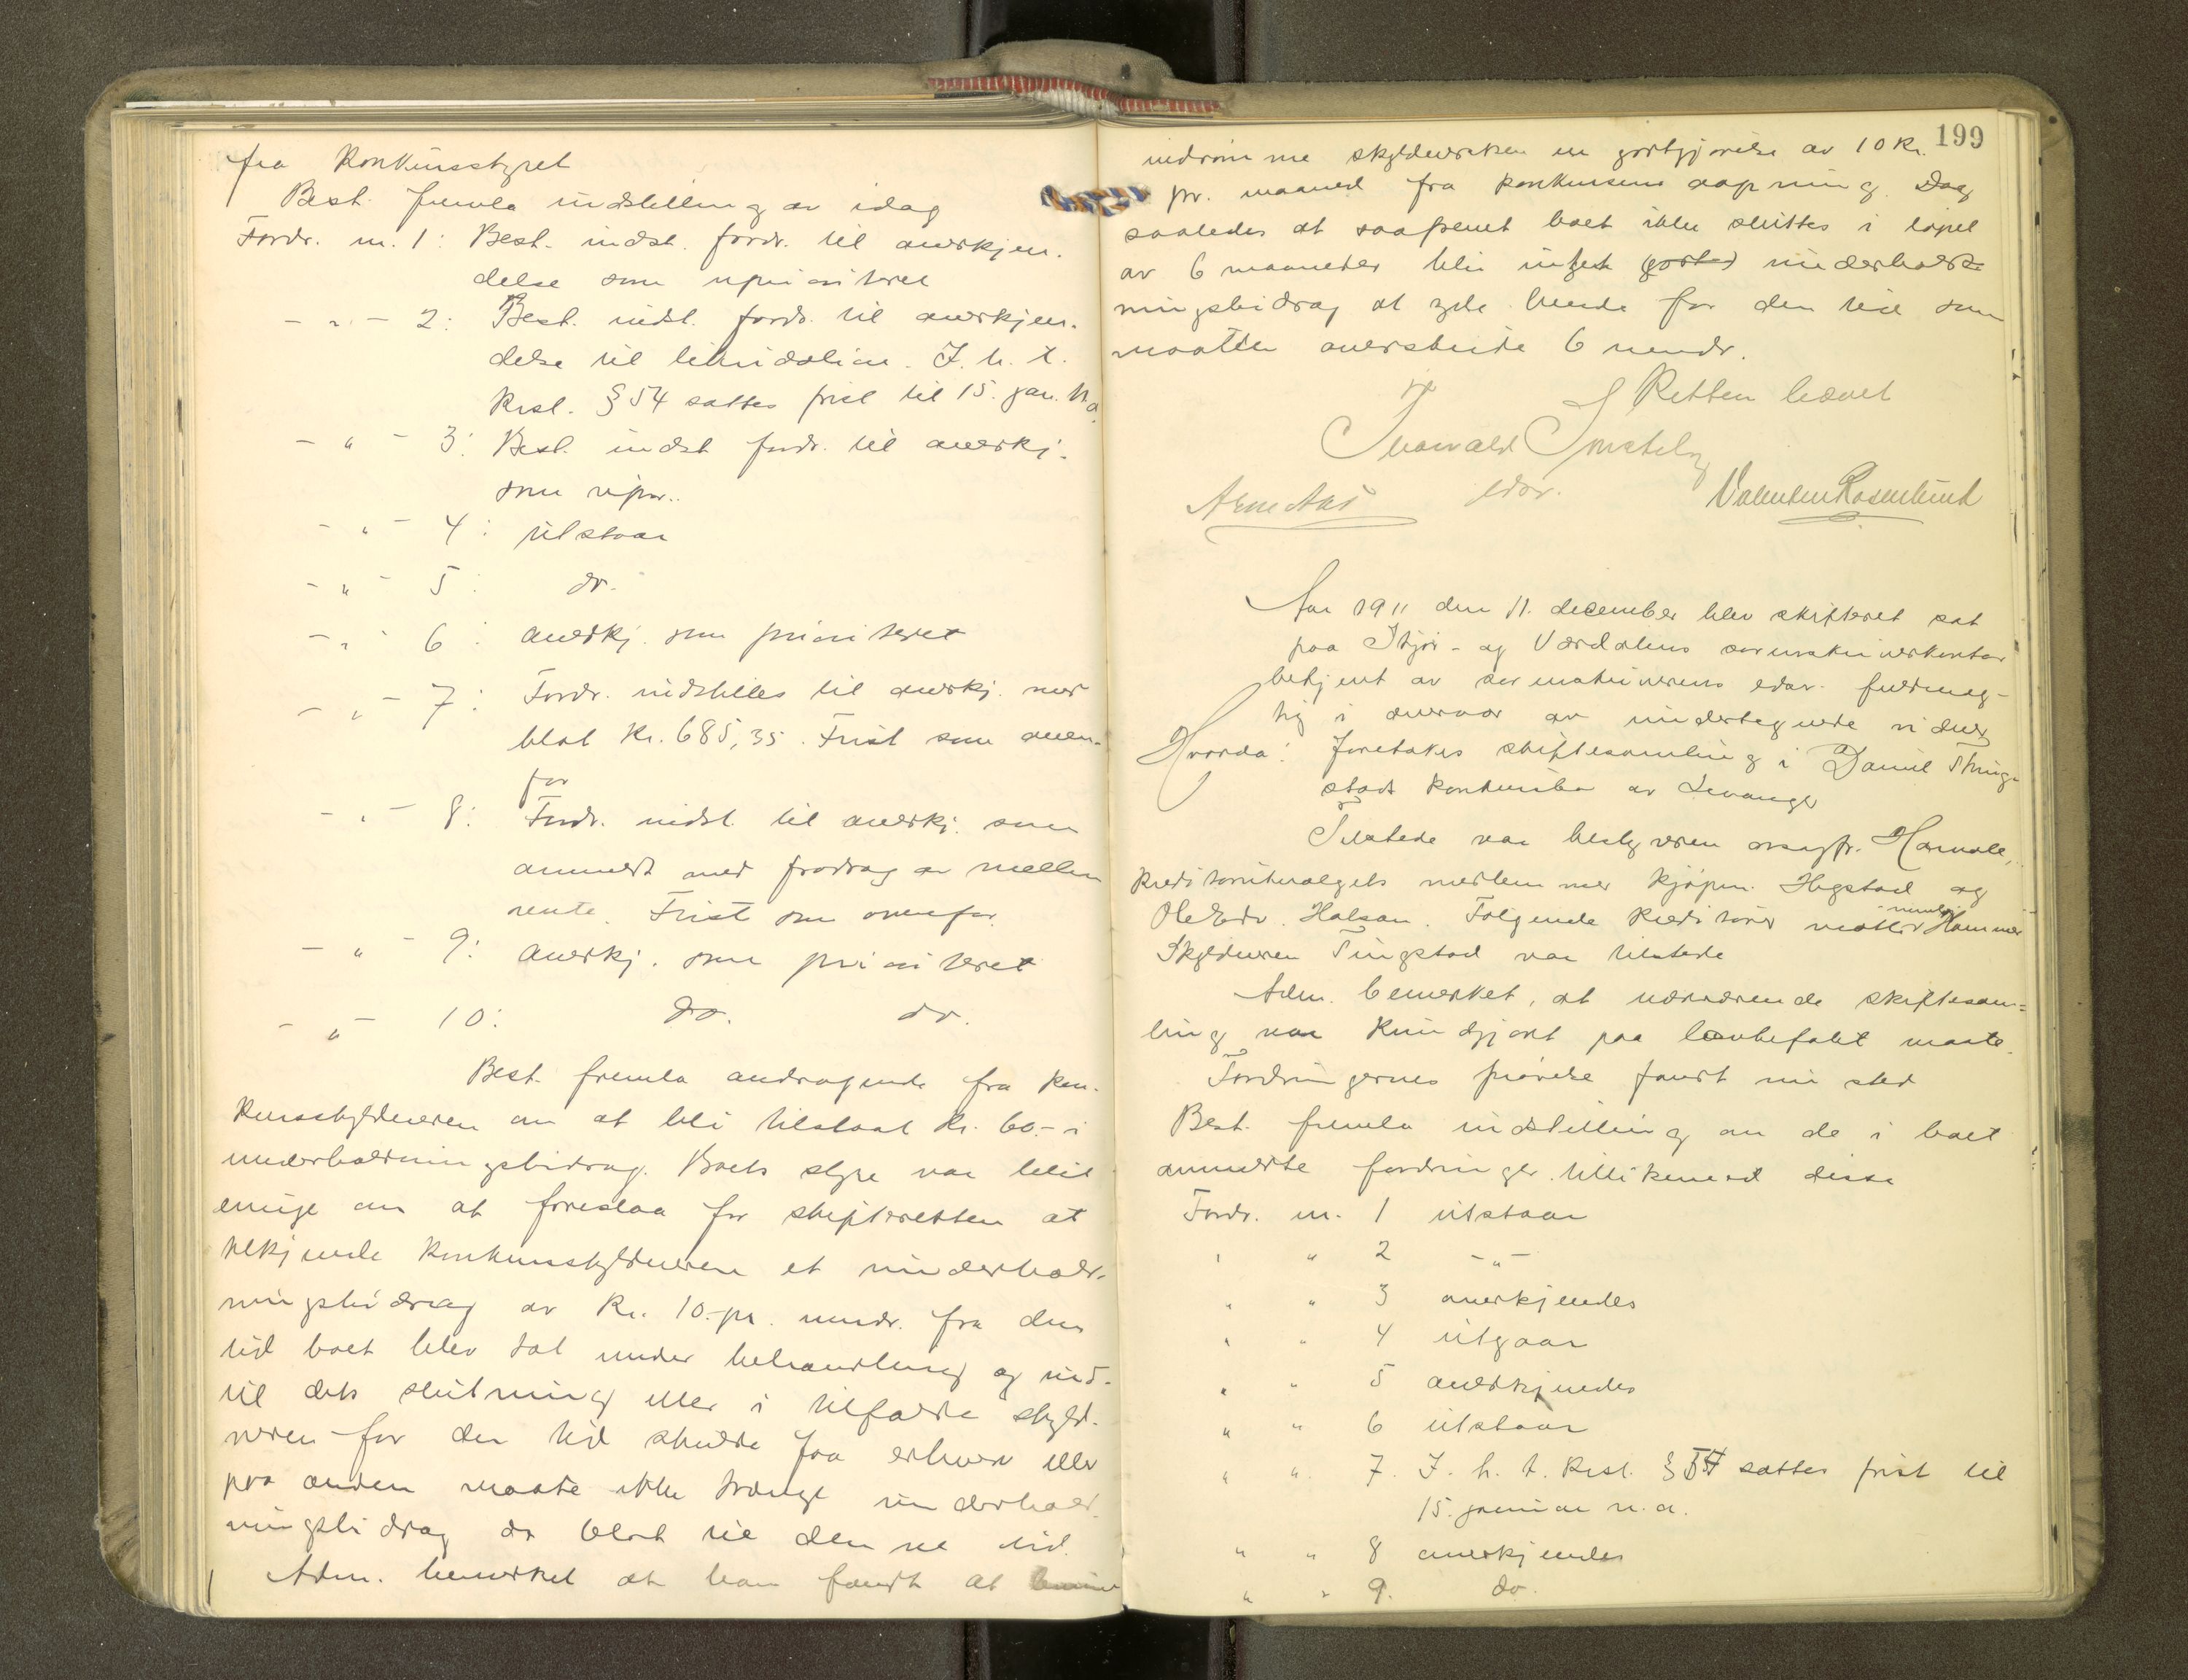 fra Konkursstyret
Best. fremla indstilling av idag
Fordr. nr. 1: Best. indst. fordr. til anerkjen-
delse som uprioritert
- " - 2: Best. indst. fordr. til anerkjen-
delse til likvidation. I. h. t.
Krsl. § 54 sattes frist til 15. jan. n.a.
- " - 3: Best. indst fordr. til anerkj.
som upr..
- " - 4: utstaar
- " - 5: do.
- " - 6: anerkj. som prioriteret
- " - 7: Fordr. indstilles til anerkj. med
blot Kr. 685,35. Frist som oven-
for
- " - 8: Fordr. indst. til anerkj. som
anmeldt med fradrag av mellem
rente. Frist som ovenfor.
- " - 9: anerkj. som prioriteret
- " - 10: do. do.
Best. fremla andragende fra kon-
kursskyldneren om at bli tilstaat Kr. 60.- i
underholdningsbidrag. Boets styre var blit
enige om at foreslaa for skifteretten at
tilkjende konkursskyldneren et underhold-
ningsbidrag av Kr. 10.- pr. mndr. fra den
tid boet blev tat under behandling og ind-
til dets slutning eller i tilfælde skyld-
neren for den tid skulde faa erhverv eller
paa anden maate ikke trænge underhold-
ningsbidrag da blot til denne tid.
Adm. bemerket at han fandt at
199
indrømme skyldnersken en godtgjørelse av 10 Kr.
pr. maaned fra konkursens aapning. Dog
saaledes at saafremt boet ikke sluttes i løpet
av 6 maaneder blir intet underhold-
ningsbidrag at yde hende for den tid som
maatte overskride 6 mndr.
Retten hævet
Thorvald
edsv.
Arne Aas Valentin Rosenlund
Aar 1911 den 11. december blev skifteret sat
paa Stjør- og Værdalens sorenskriverkontor
betjent av sorenskriverens edsv. fuldmæg-
tig i overvær av undertegnede vidner
Hvorda: foretokes skiftesamling i Daniel Thing-
stads konkursbo av Levanger
Tilstede var bestyreren
Kreditorutvalgets medlemmer kjøpm. Hegstad og
Ole Edv. Halsan. Følgende kreditorer møtte: Hammer
Skyldneren Tingstad var tilstede
Adm. bemerket, at nærværende skiftesam-
ling var kundgjort paa lovbefalt maate.
Fordringernes prøvelse fandt nu sted
Best. fremla indstilling om de i boet
anmeldte fordringer tillikemed disse
Fordr. nr. 1 utstaar
" " 2 - " -
" " 3 anerkjendes
" " 4 utgaar
" " 5 anerkjendes
" " 6 utstaar
" " 7. I. h. t. Krsl. § 54 sattes frist til
15. januar n.a.
" " 8 anerkjendes
" " 9. do.